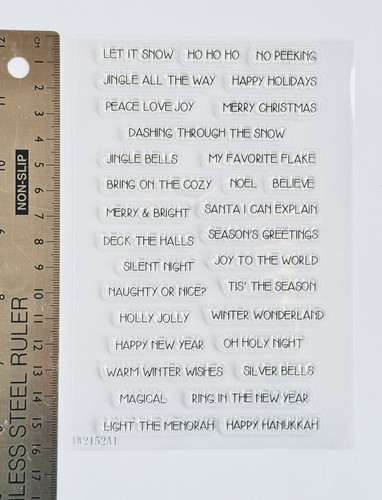 LET IT SNOW HO HO HO NO PEEKING
JINGLE ALL THE WAY HAPPY HOLIDAYS
PEACE LOVE JOY MERRY CHRISTMAS
DASHING THROUGH THE SNOW
JINGLE BELLS MY FAVORITE FLAKE
BRING ON THE COZY NOEL BELIEVE
MERRY & BRIGHT SANTA I CAN EXPLAIN
DECK THE HALLS SEASON'S GREETINGS
SILENT NIGHT JOY TO THE WORLD
NAUGHTY OR NICE? TIS' THE SEASON
HOLLY JOLLY WINTER WONDERLAND
HAPPY NEW YEAR OH HOLY NIGHT
WARM WINTER WISHES SILVER BELLS
MAGICAL RING IN THE NEW YEAR
LIGHT THE MENORAH HAPPY HANUKKAH
AW2152A1
CM
1
2
3
4
5
6
7
8
9
10
11
12
13
14
15
16
17
12
11
10
9
8
NON-SLIP
LESS STEEL RULER